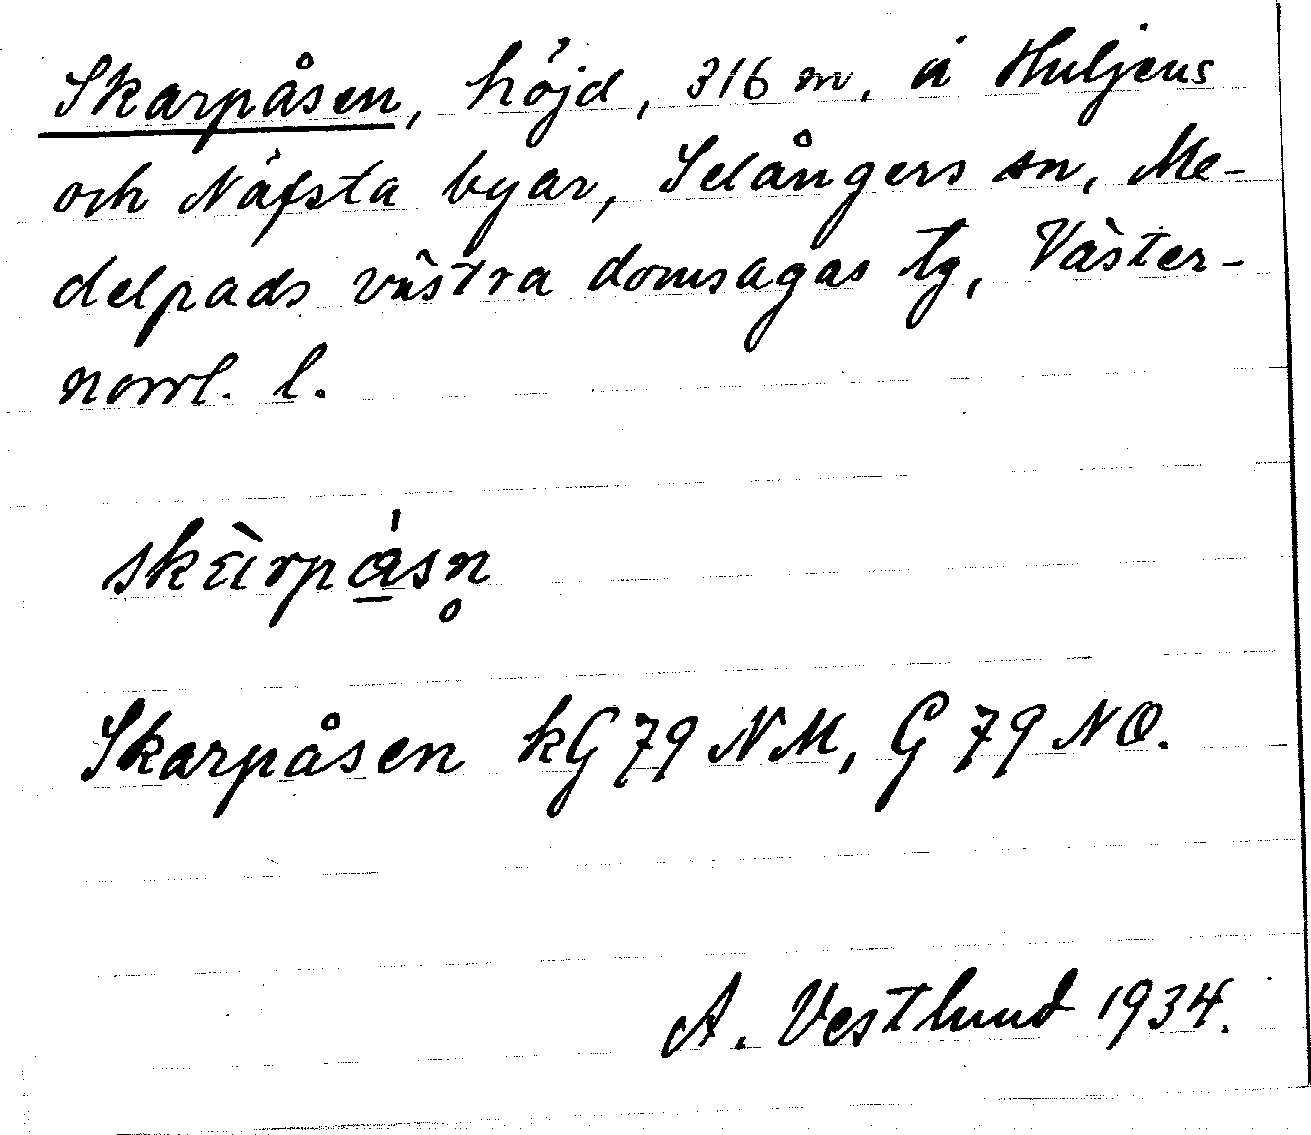 Skarpåsen, höjd, 316 m, å Huljens
och Näfsta byar, Selångers sn, Me-
delpads västra domsagas tg, Väster-
norrl. l.
skàrpásn̥
Skarpåsen kG 79 NM, G 79 NO.
A. Vestlund 1934.